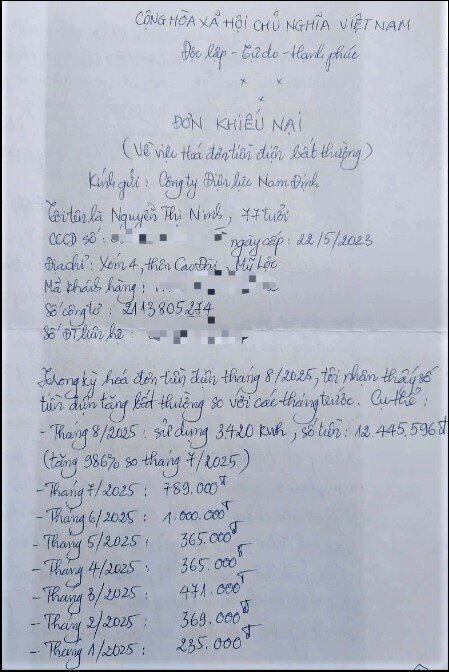 CỘNG HÒA XÃ HỘI CHỦ NGHĨA VIỆT NAM
Độc lập - Tự do - Hạnh phúc
ĐƠN KHIẾU NẠI
(Về việc Hoá đơn tiền điện bất thường)
Kính gửi : Công ty Điện lực Nam Định
Tôi tên là Nguyễn Thị Ninh, 77 tuổi
CCCD số : ngày cấp : 22/5/2023
Địa chỉ : Xóm 4, thôn Cao Đài, Mỹ Lộc
Mã khách hàng :
Số công tơ : 2113805274
Số ĐT liên hệ :
Trong kỳ hoá đơn tiền điện tháng 8/2025, tôi nhận thấy số
tiền điện tăng bất thường so với các tháng trước. Cụ thể :
- Tháng 8/2025 : sử dụng 3.420 kwh, số tiền : 12.445.596đ
(tăng 986% so tháng 7/2025)
- Tháng 7/2025 : 789.000đ
- Tháng 6/2025 : 1.000.000đ
- Tháng 5/2025 : 365.000đ
- Tháng 4/2025 : 365.000đ
- Tháng 3/2025 : 471.000đ
- Tháng 2/2025 : 369.000đ
- Tháng 1/2025 : 235.000đ